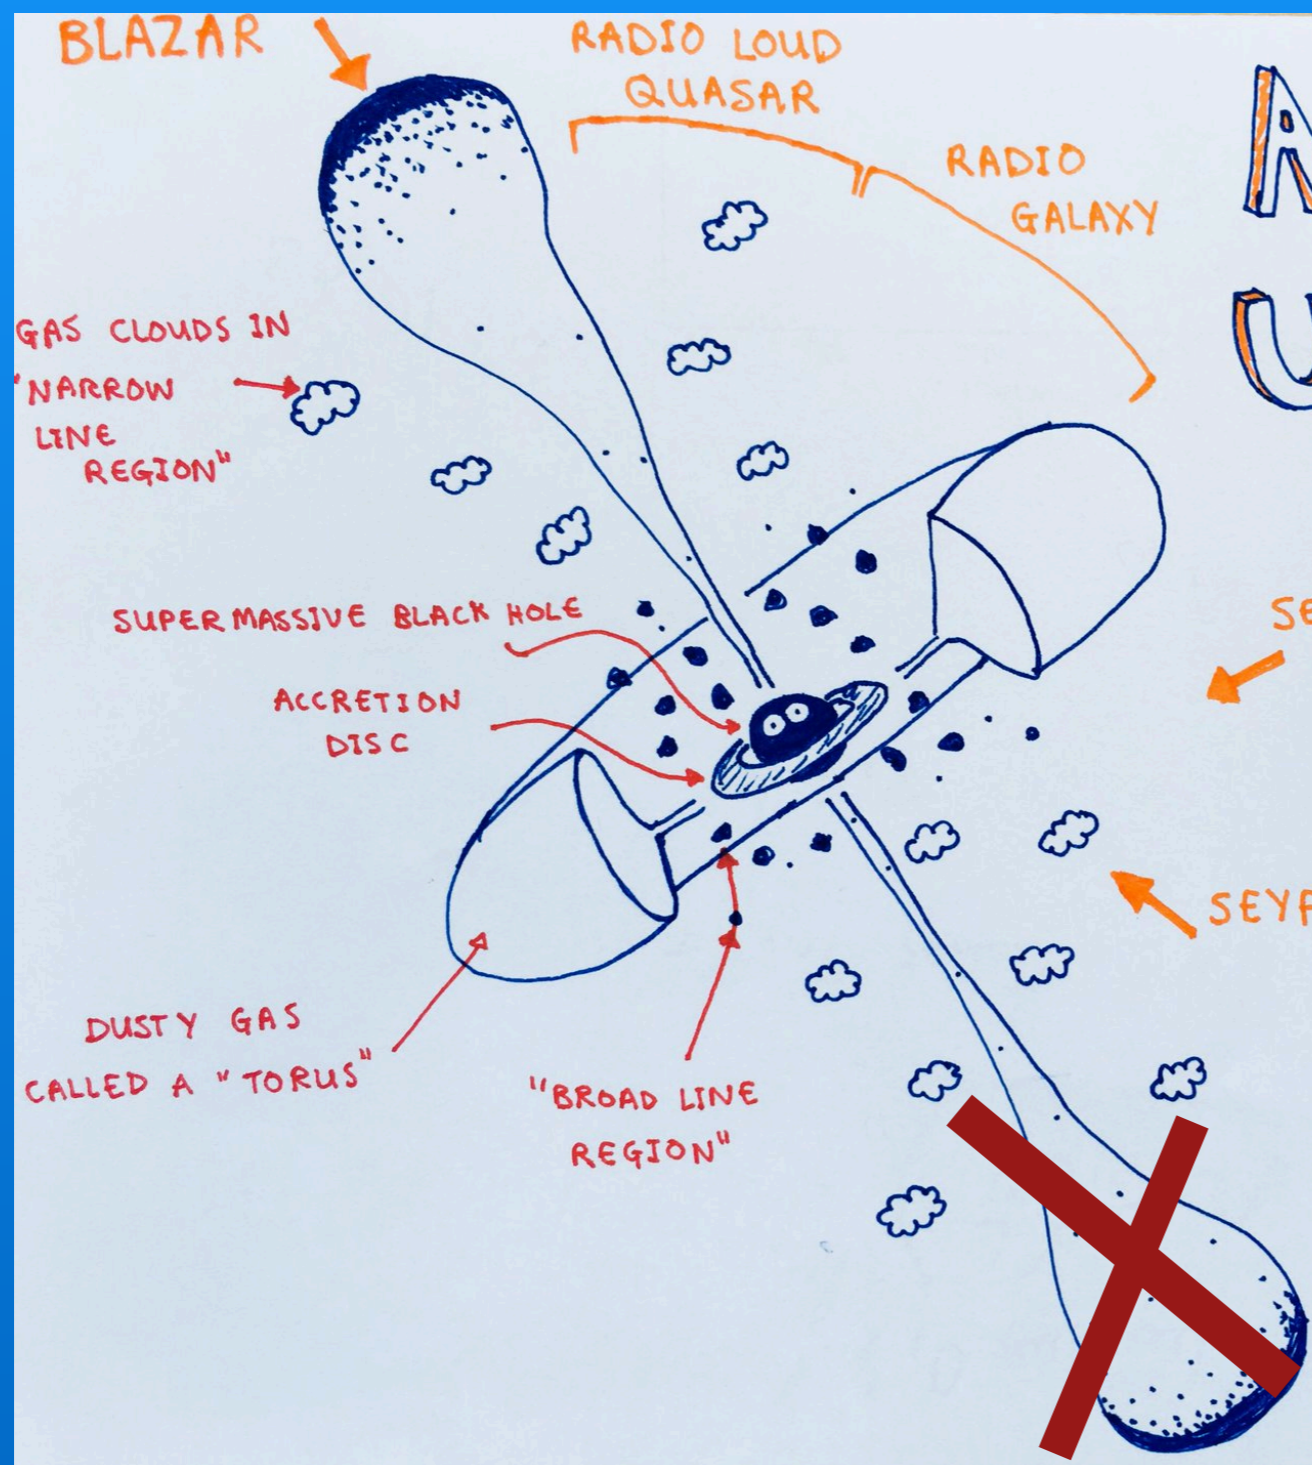 BLAZAR
RADIO LOUD
QUASAR
RADIO
GALAXY
A
U
GAS CLOUDS IN
"NARROW
LINE
REGION"
SUPERMASSIVE BLACK HOLE
ACCRETION
DISC
SE
SEYF
DUSTY GAS
CALLED A "TORUS"
"BROAD LINE
REGION"